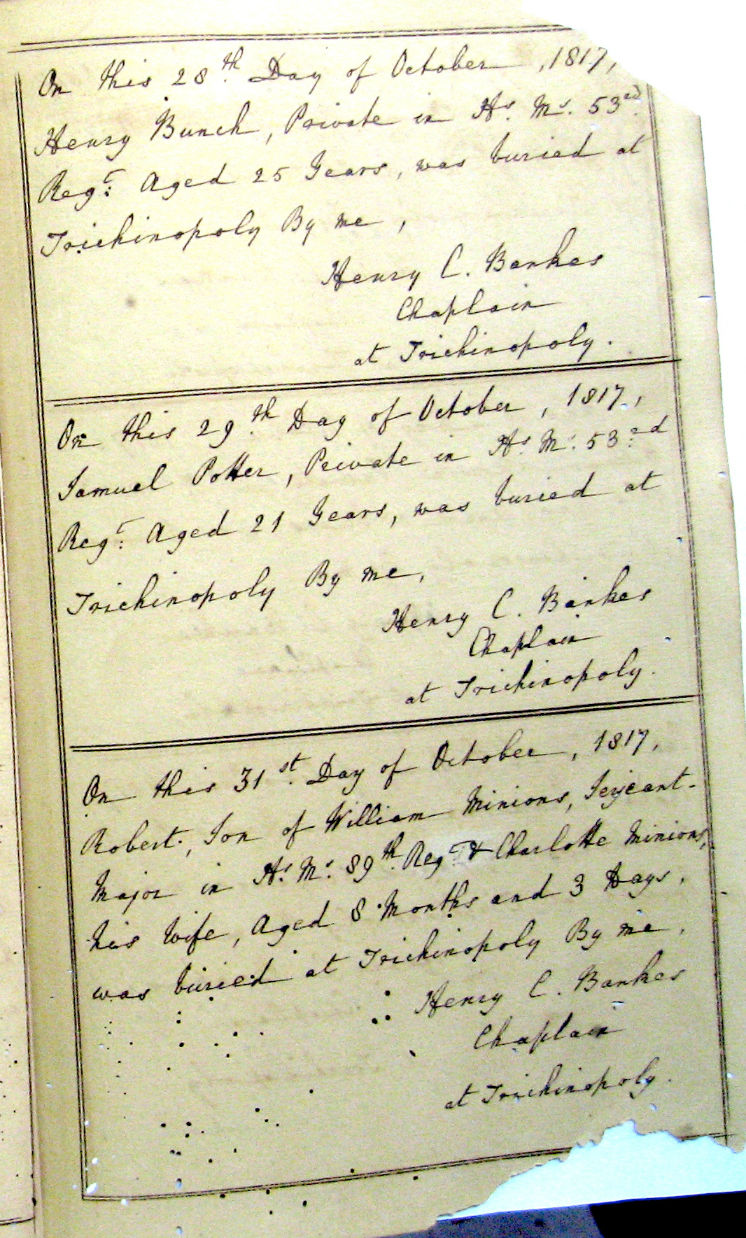 On this 28th. Day of October, 1817,
Henry Bunch, Private in Hs. Ms. 53rd.
Regt: Aged 25 Years, was buried at
Trichinopoly By me,
Henry C. Bankes
Chaplain
at Trichinopoly.
On this 29th. Day of October, 1817,
Samuel Potter, Private in Hs. Ms. 53rd
Regt: Aged 21 Years, was buried at
Trichinopoly By me,
Henry C. Bankes
Chaplain
at Trichinopoly.
On this 31st. Day of October, 1817,
Robert, Son of William Minions, Serjeant-
Major in Hs. Ms. 89th. Regt. & Charlotte Minions,
his Wife, Aged 8 Months and 3 Days,
was buried at Trichinopoly By me,
Henry C. Bankes
Chaplain
at Trichinopoly.